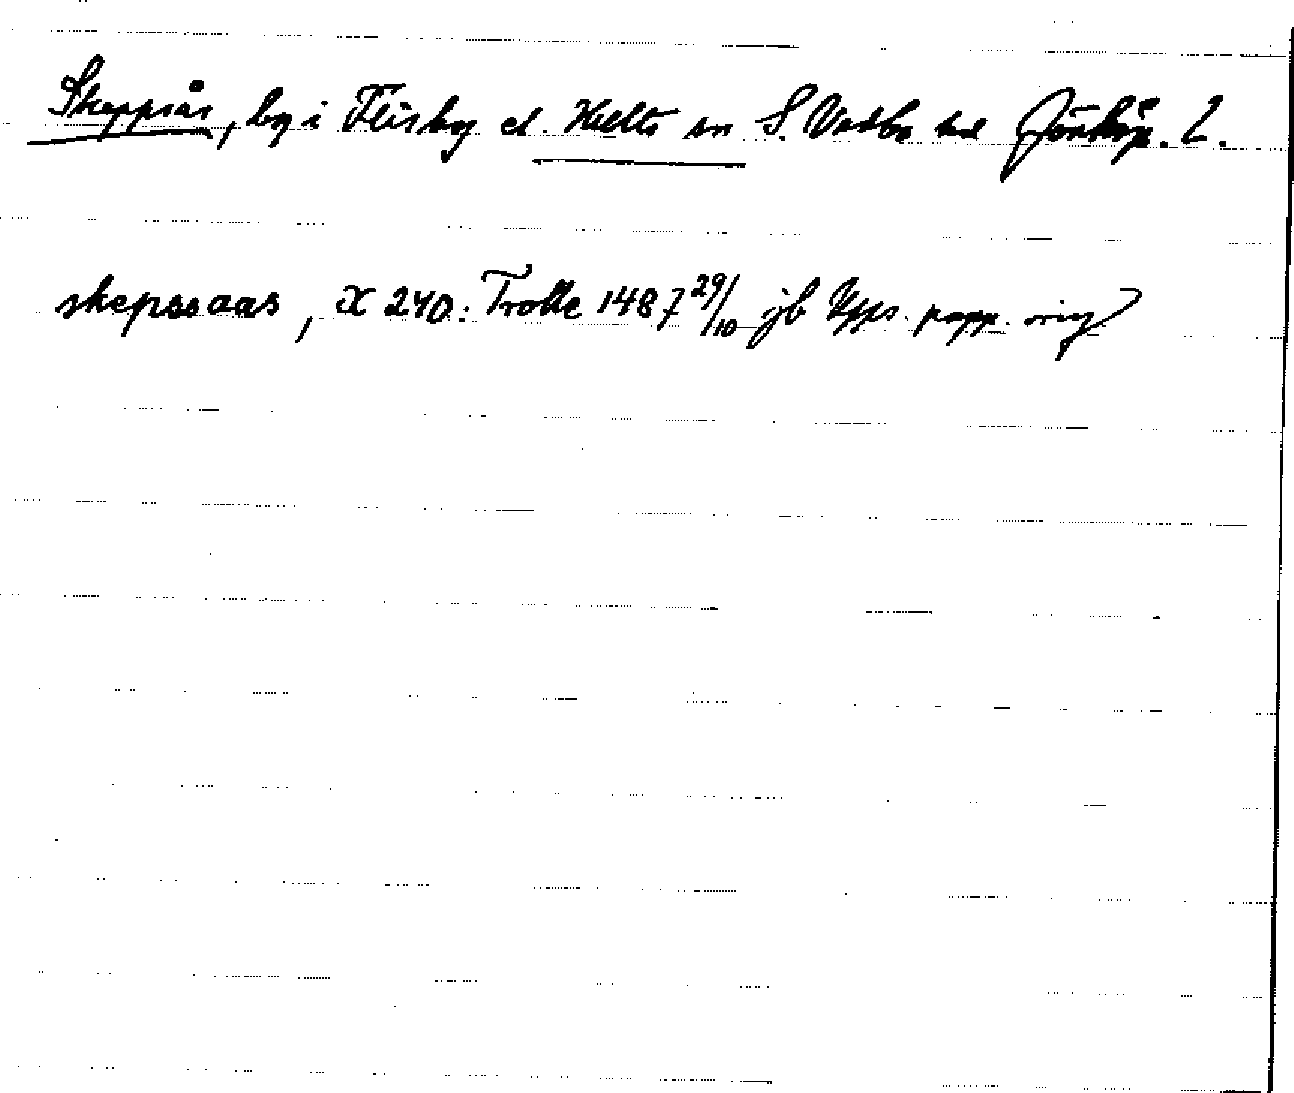 Skeppsås, by i Flisby el. Hults sn S. Vedbo hd Jönköp. L.
skepsaas, X 240: Trolle 1487 29/10 jb Upps. papp. orig